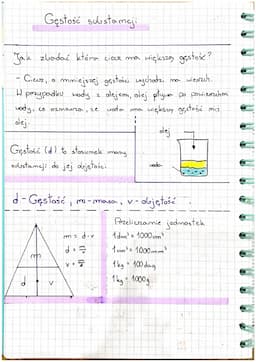 Gęstość substancji
Jak zbadać która ciecz ma większą gęstość?
- Ciecz, o mniejszej gęstości wychodzi na wierzch.
W przypadku wody z olejem, olej pływa po powierzchni
wody, co oznacza, że woda ma większą gęstość niż
olej.
olej
Gęstość (d) to stosunek masy
substancji do jej objętości.
woda
d - Gęstość, m - masa, v - objętość
Przeliczanie jednostek
m = d·v
1dm³ = 1000cm³
d = m/v
1cm³ = 1000mm³
m
v = m/d
1kg = 100dag
d v
1kg = 1000g